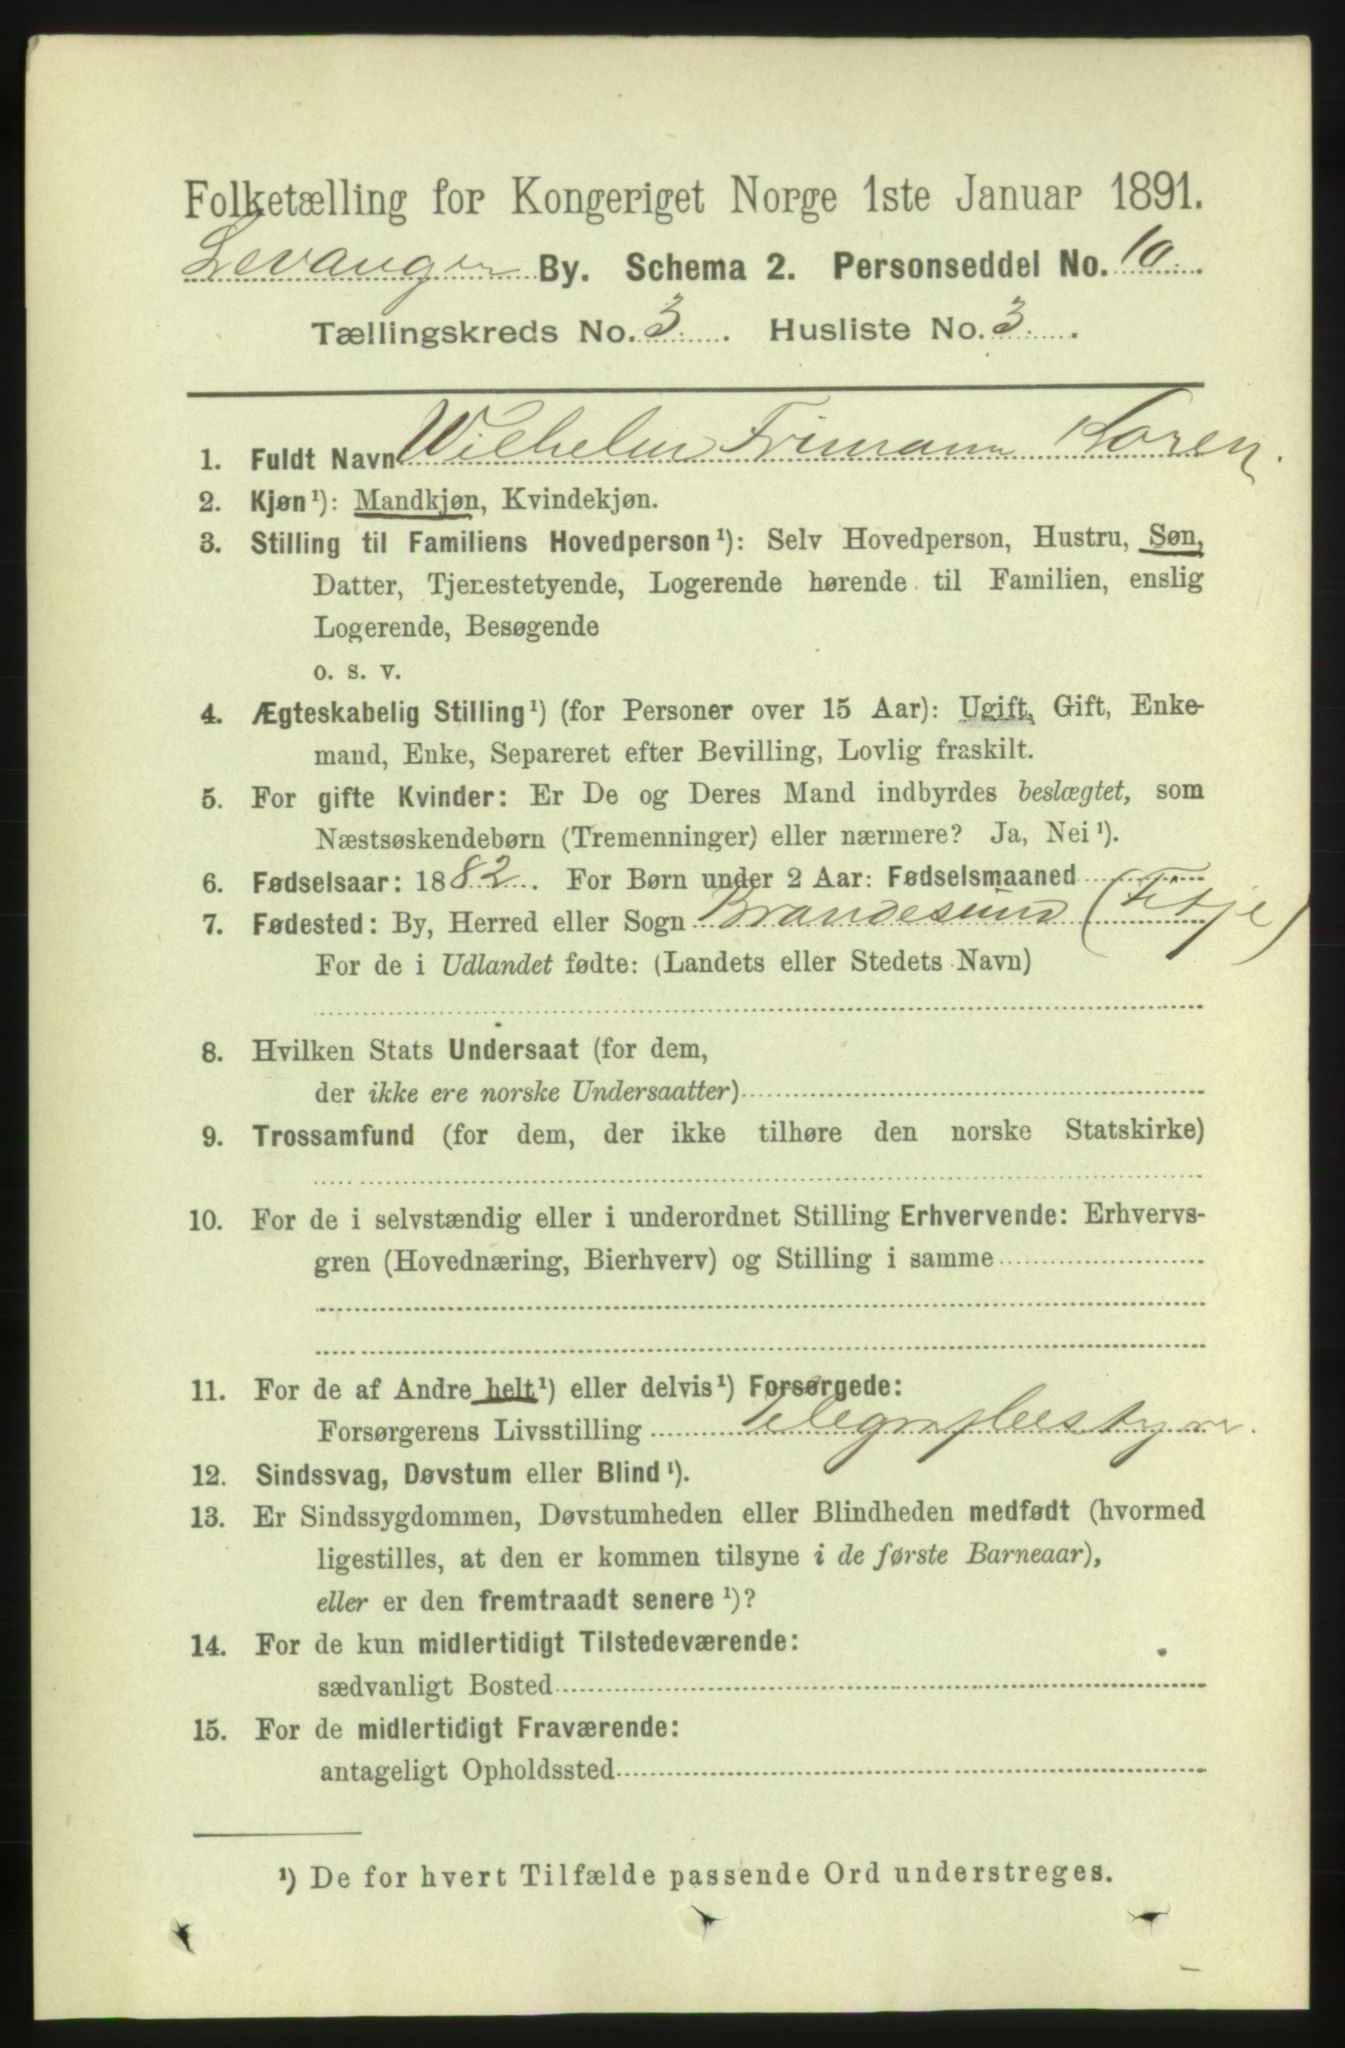 Folketælling for Kongeriget Norge 1ste Januar 1891.
Levanger By. Schema 2. Personseddel No. 10
Tællingskreds No. 3. Husliste No. 3.
1. Fuldt Navn Wilhelm Frimann Koren.
2. Kjøn¹): Mandkjøn, Kvindekjøn.
3. Stilling til Familiens Hovedperson¹): Selv Hovedperson, Hustru, Søn,
Datter, Tjenestetyende, Logerende hørende til Familien, enslig
Logerende, Besøgende
o. s. v.
4. Ægteskabelig Stilling¹) (for Personer over 15 Aar): Ugift, Gift, Enke-
mand, Enke, Separeret efter Bevilling, Lovlig fraskilt.
5. For gifte Kvinder: Er De og Deres Mand indbyrdes beslægtet, som
Næstsøskendebørn (Tremenninger) eller nærmere? Ja, Nei¹).
6. Fødselsaar: 1882. For Børn under 2 Aar: Fødselsmaaned
7. Fødested: By, Herred eller Sogn Brandesund (Fitje)
For de i Udlandet fødte: (Landets eller Stedets Navn)
8. Hvilken Stats Undersaat (for dem,
der ikke ere norske Undersaatter)
9. Trossamfund (for dem, der ikke tilhøre den norske Statskirke)
10. For de i selvstændig eller i underordnet Stilling Erhvervende: Erhvervs-
gren (Hovednæring, Bierhverv) og Stilling i samme
11. For de af Andre helt¹) eller delvis¹) Forsørgede:
Forsørgerens Livsstilling Telegrafbestyrer.
12. Sindssvag, Døvstum eller Blind¹).
13. Er Sindssygdommen, Døvstumheden eller Blindheden medfødt (hvormed
ligestilles, at den er kommen tilsyne i de første Barneaar),
eller er den fremtraadt senere¹)?
14. For de kun midlertidigt Tilstedeværende:
sædvanligt Bosted
15. For de midlertidigt Fraværende:
antageligt Opholdssted
¹) De for hvert Tilfælde passende Ord understreges.